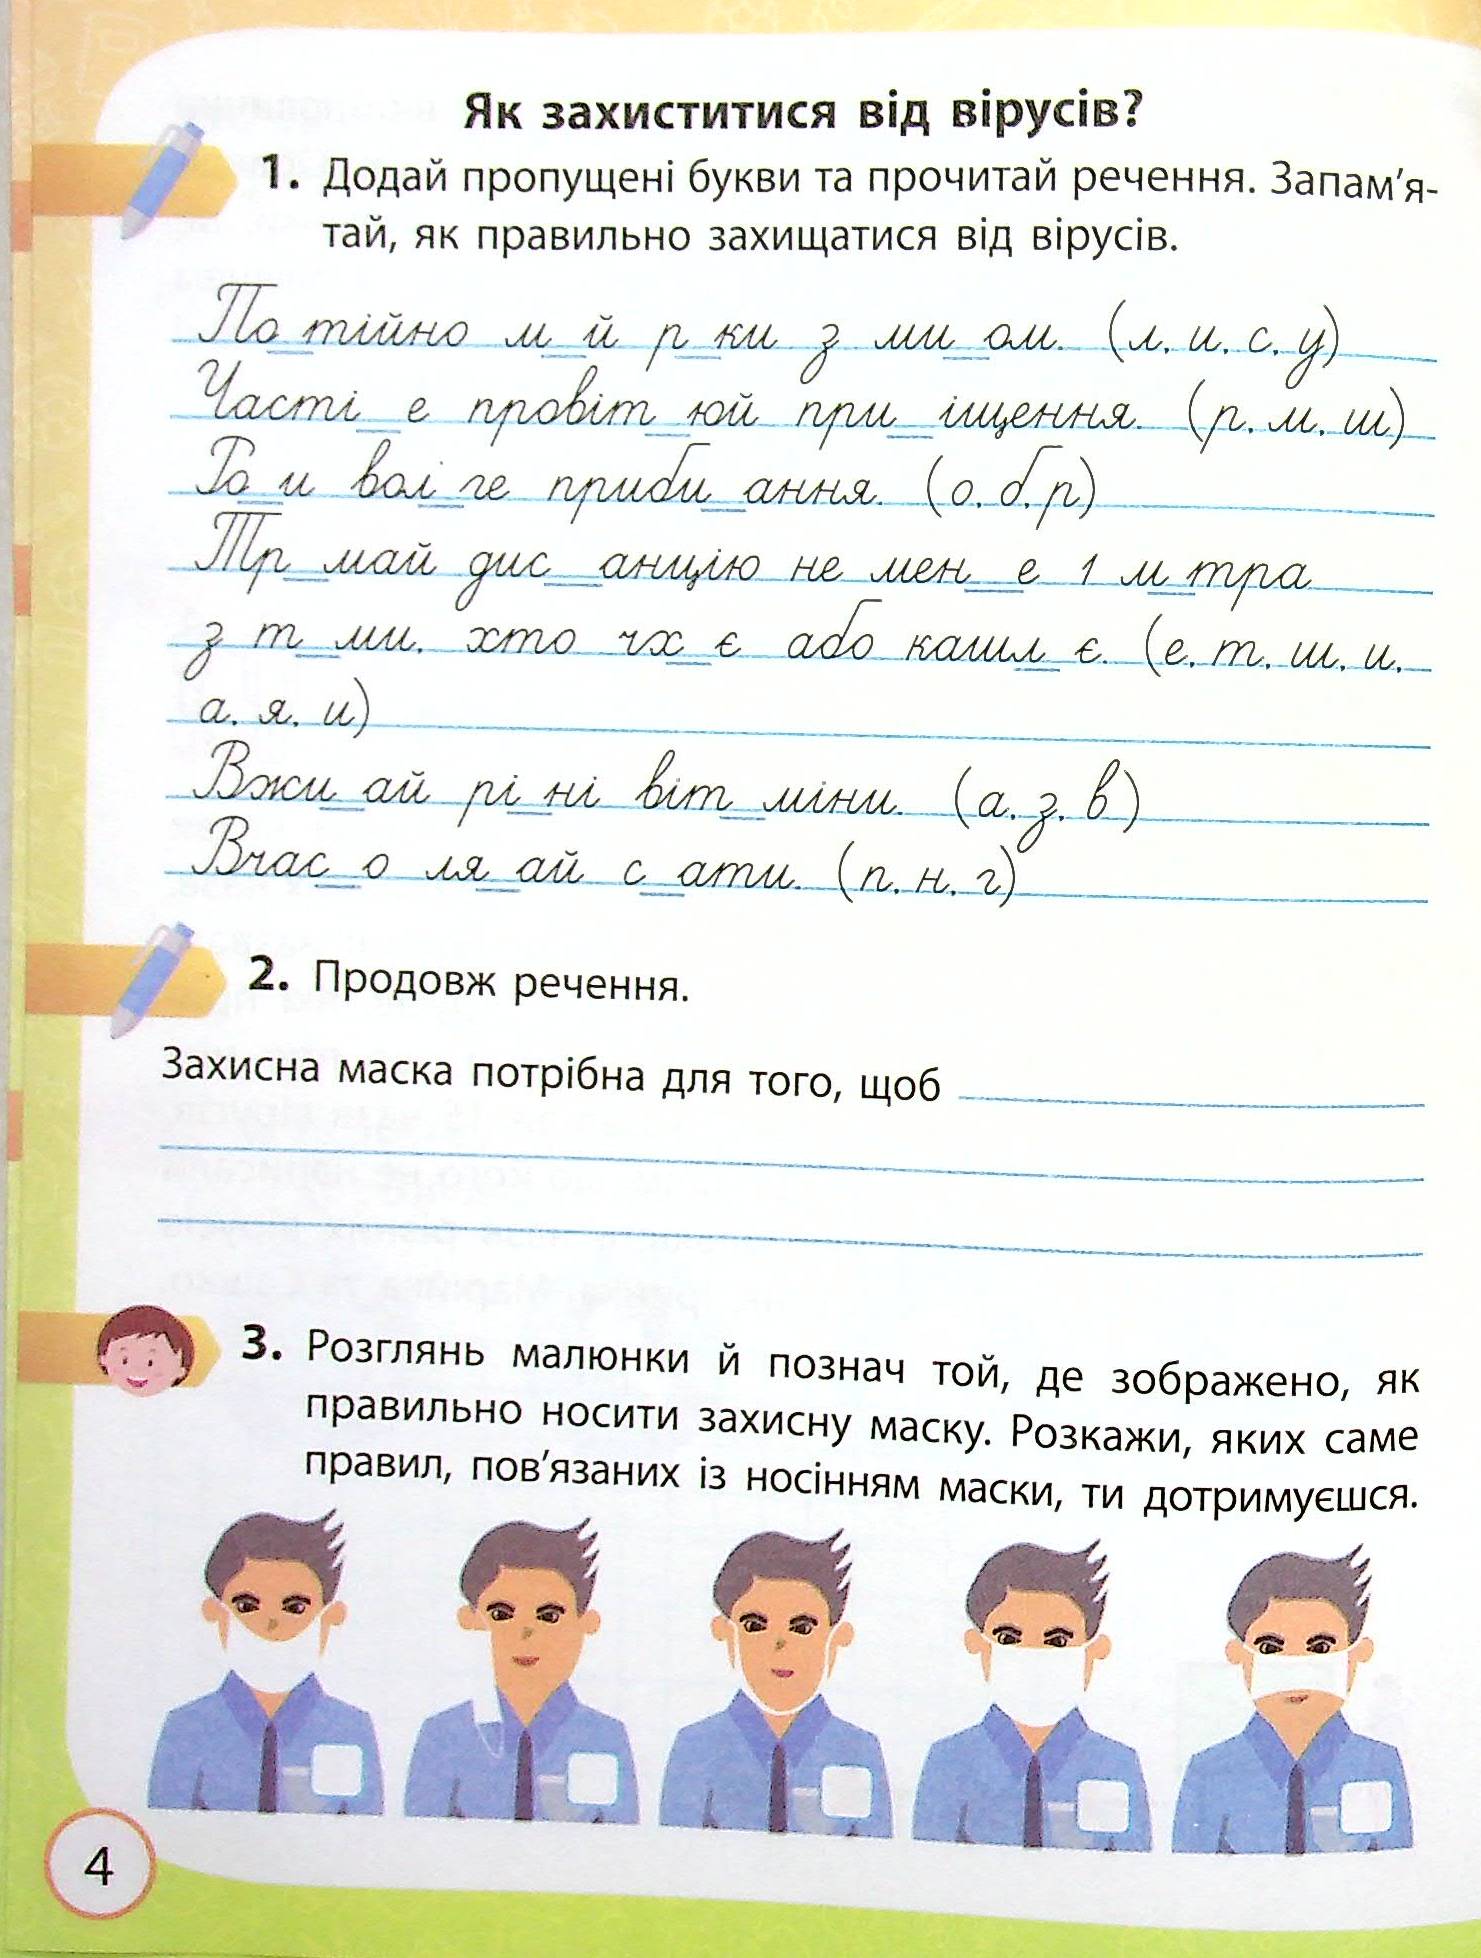 Як захиститися від вірусів?
1. Додай пропущені букви та прочитай речення. Запам’я-
тай, як правильно захищатися від вірусів.
По_тійно м_й р_ки з ми_ом. (л, и, с, у)
Часті_е провіт_юй при_іщення. (р, м, ш)
Ро_и вол_ге приби_ання. (о, б, р)
Тр_май дис_анцію не мен_е 1 м_тра
з т_ми, хто чх_є або кашл_є. (е, т, ш, и,
а, я, и)
Вжи_ай рі_ні віт_міни. (а, з, в)
Вчас_о ля_ай с_ати. (п, н, г)
2. Продовж речення.
Захисна маска потрібна для того, щоб
3. Розглянь малюнки й познач той, де зображено, як
правильно носити захисну маску. Розкажи, яких саме
правил, пов’язаних із носінням маски, ти дотримуєшся.
4